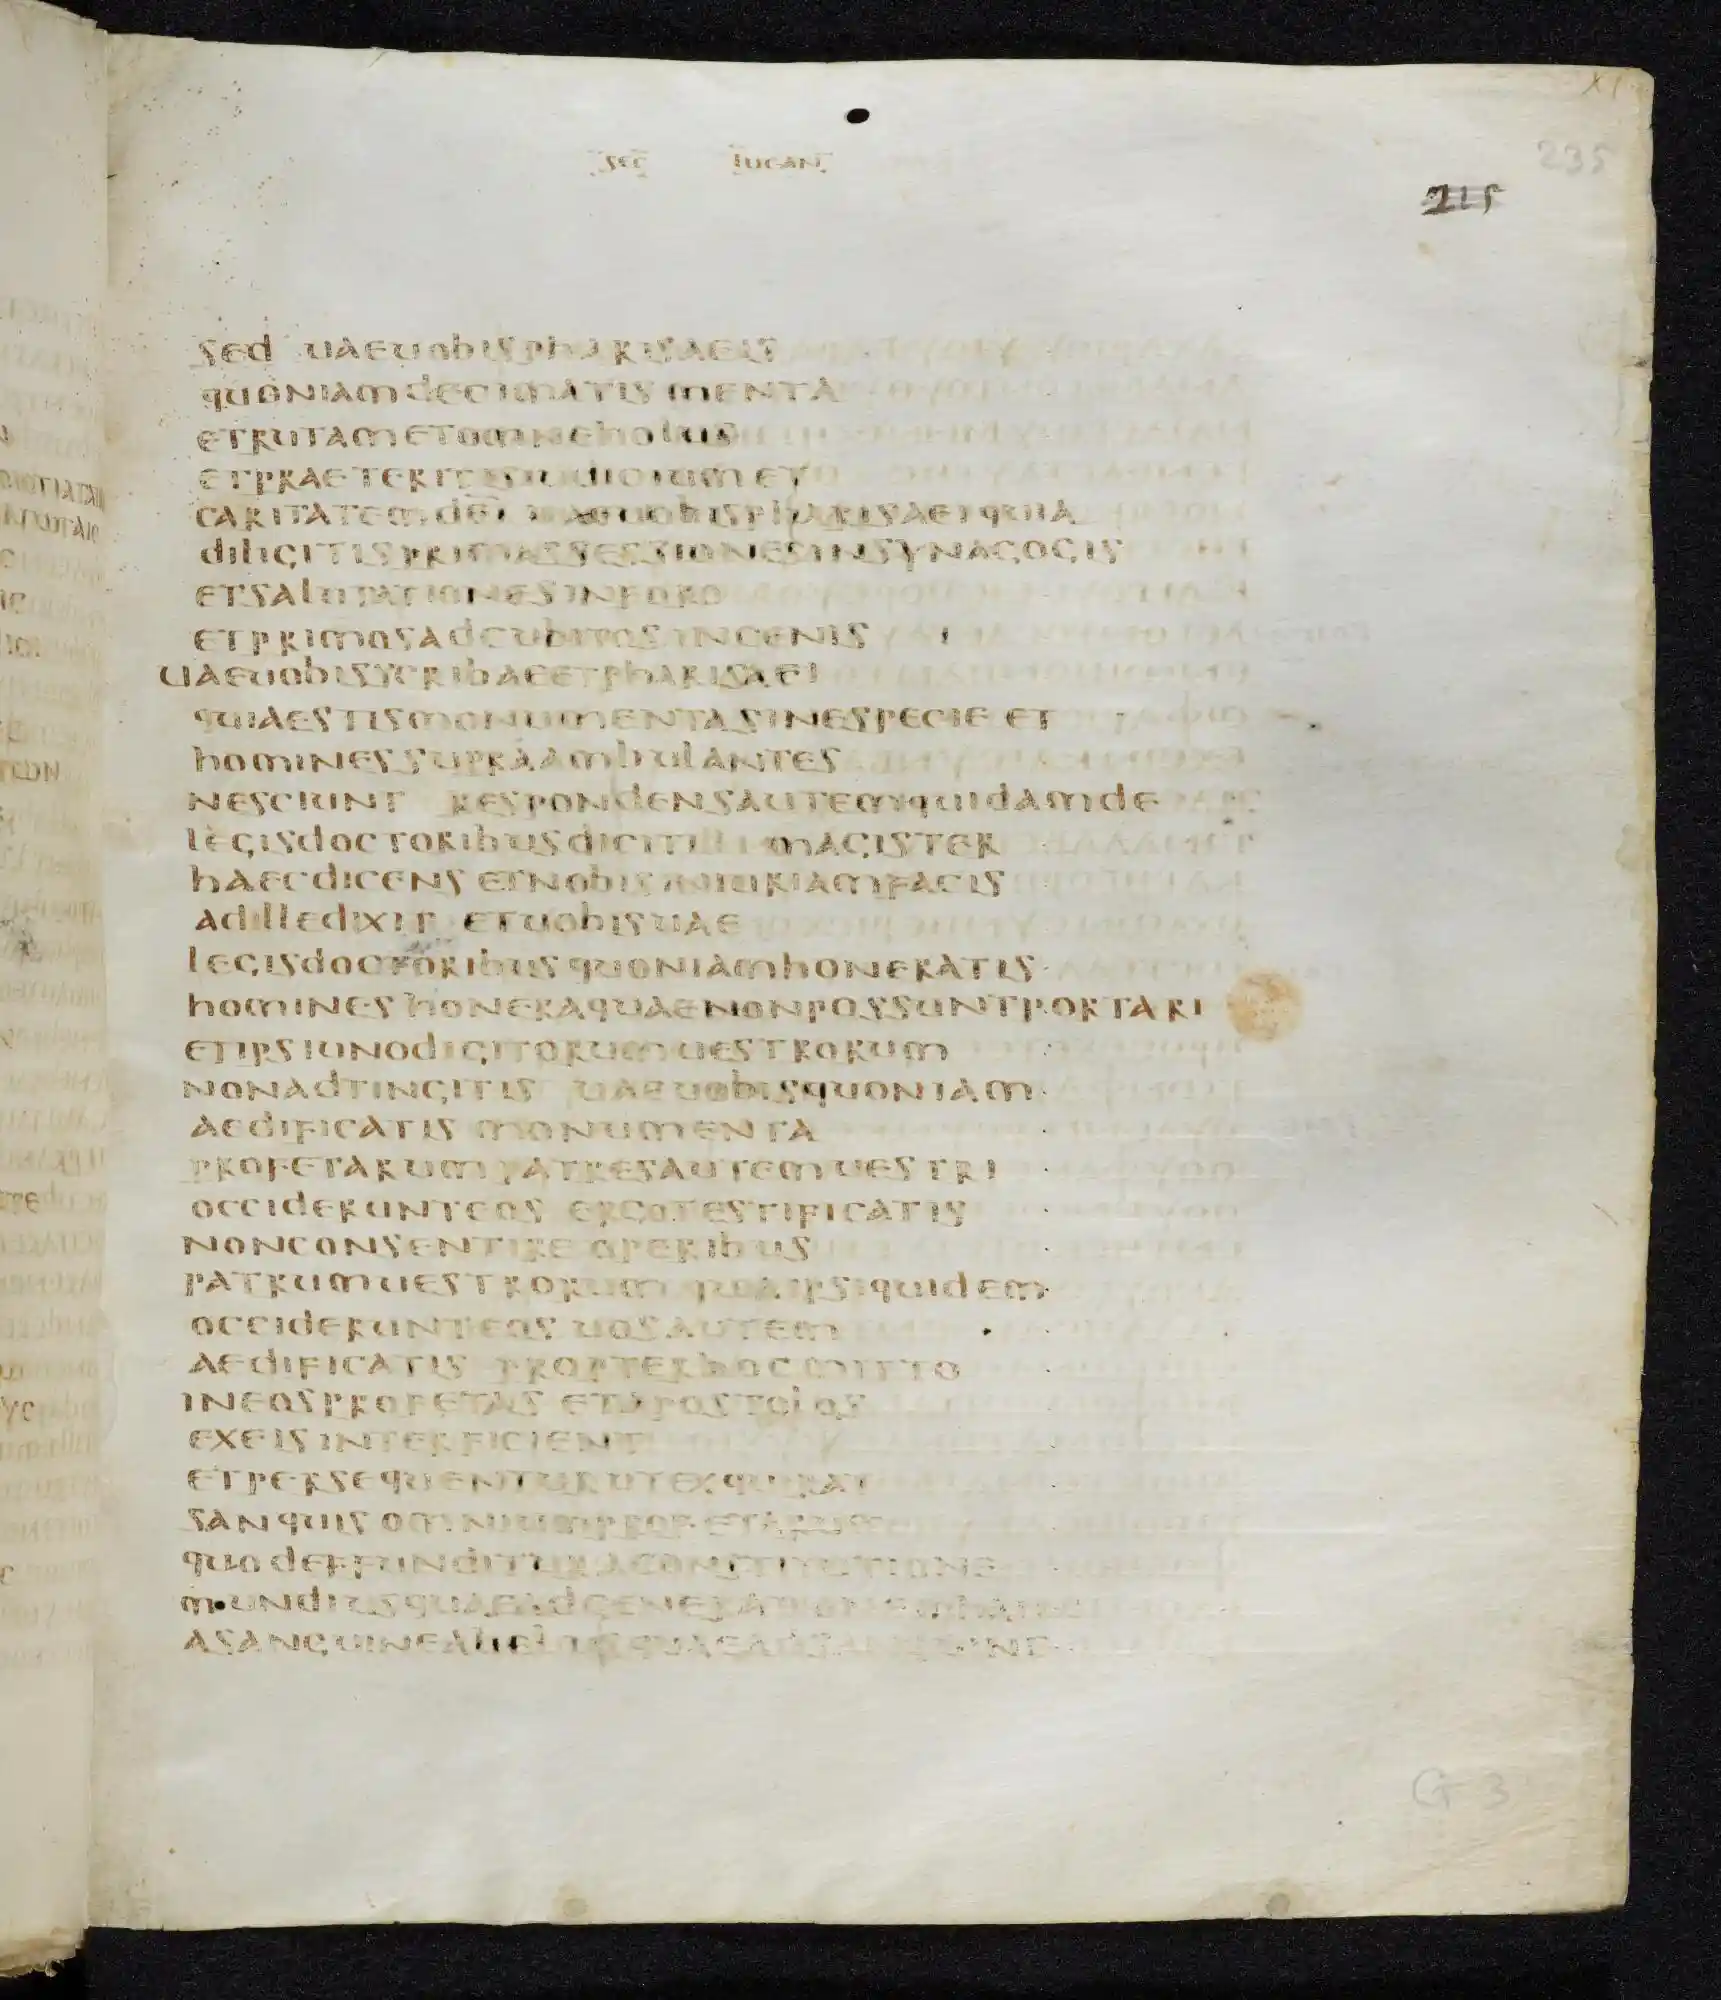 XI
235
sec lucan
215
sed uaeuobispharisaeis
quoniamdecimatis menta
etrutametomneholus
etpraeteritisiudiciumet
caritatemdei uaeuobispharisaeiquia
diligitisprimassessionesinsynagogis
etsalutationesinforo
etprimosadcubitosincenis
uaeuobisscribaeetpharisaei
quiaestismonumentasinespecie et
hominessupraambulantes
nesciunt respondensautemquidamde
legisdoctoribusdicitilli magister
haecdicens etnobisiniuriamfacis
adilledixit etuobisuae
legisdoctoribus quoniamhoneratis
homines honeraquaenonpossuntportari
etipsiunodigitorumuestrorum
nonadtingitis uaeuobisquoniam
aedificatis monumenta
profetarumpatresautemuestri
occiderunteos ergotestificatis
nonconsentire operibus
patrumuestrorum quaipsiquidem
occiderunteos uosautem
aedificatis propterhoc mitto
ineosprofetas etapostolos
exeisinterficient
etpersequenturutexquirat
sanquis omniumprofetarum
quodeffundituraconstitutione
mundiusquaeadgenerationem
asanguineabelusquaeadsanguine
G 3